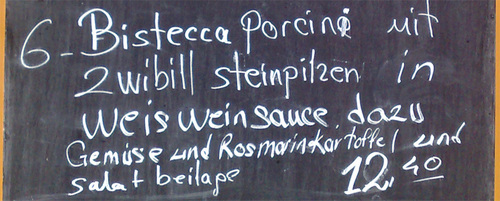 6- Bistecca Porcini mit
Zwibill steinpilzen in
weisweinsauce, dazu
Gemüse und Rosmarinkartoffel und
salat beilage 12.40